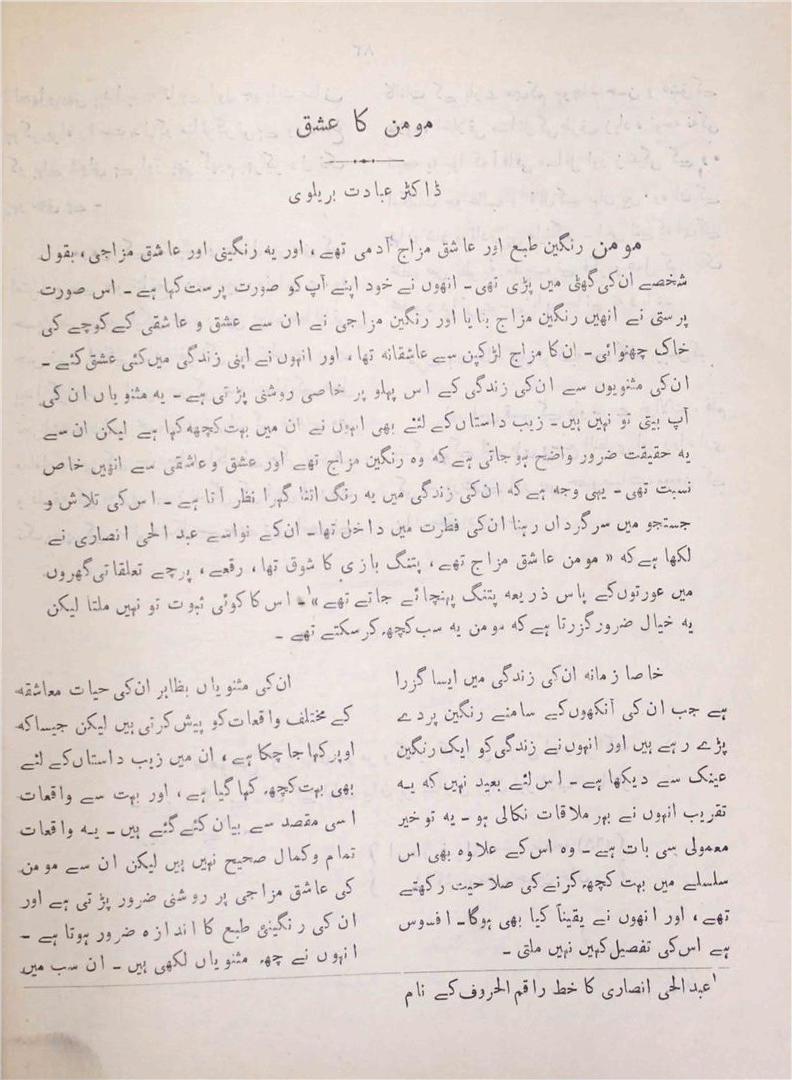 مومن کا عشق
ڈاکٹر عبادت بریلوی
مومن رنگین طبع اور عاشق مزاج آدمی تھے ، اور یہ رنگینی اور عاشق مزاجی ، بقول
شخصے ان کی گھٹی میں پڑی تھی ۔ انھوں نے خود اپنے آپ کو صورت پرست کہا ہے ۔ اس صورت
پرستی نے انھیں رنگین مزاج بنایا اور رنگین مزاجی نے ان سے عشق و عاشقی کے کوچے کی
خاک چھنوائی ۔ ان کا مزاج لڑکپن سے عاشقانہ تھا ، اور انہوں نے اپنی زندگی میں کئی عشق کئے ۔
ان کی مثنویوں سے ان کی زندگی کے اس پہلو پر خاصی روشنی پڑتی ہے ۔ یہ مثنویاں ان کی
آپ بیتی تو نہیں ہیں ۔ زیب داستاں کے لئے بھی انہوں نے ان میں بہت کچھ کہا ہے لیکن ان سے
یہ حقیقت ضرور واضح ہو جاتی ہے کہ وہ رنگین مزاج تھے اور عشق و عاشقی سے انھیں خاص
نسبت تھی ۔ یہی وجہ ہے کہ ان کی زندگی میں یہ رنگ اتنا گہرا نظر آتا ہے ۔ اس کی تلاش و
جستجو میں سرگرداں رہنا ان کی فطرت میں داخل تھا ۔ ان کے نواسے عبد الحی انصاری نے
لکھا ہے کہ « مومن عاشق مزاج تھے ، پتنگ بازی کا شوق تھا ، رقعے ، پرچے تعلقاتی گھروں
میں عورتوں کے پاس ذریعہ پتنگ پہنچائے جاتے تھے »¹ ۔ اس کا کوئی ثبوت تو نہیں ملتا لیکن
یہ خیال ضرور گزرتا ہے کہ مومن یہ سب کچھ کر سکتے تھے ۔
خاصا زمانہ ان کی زندگی میں ایسا گزرا
ہے جب ان کی آنکھوں کے سامنے رنگین پردے
پڑے رہے ہیں اور انہوں نے زندگی کو ایک رنگین
عینک سے دیکھا ہے ۔ اس لئے بعید نہیں کہ یہ
تقریب انہوں نے بہر ملاقات نکالی ہو ۔ یہ تو خیر
معمولی سی بات ہے ۔ وہ اس کے علاوہ بھی اس
سلسلے میں بہت کچھ کرنے کی صلاحیت رکھتے
تھے ، اور انھوں نے یقیناً کیا بھی ہوگا ۔ افسوس
ہے اس کی تفصیل کہیں نہیں ملتی ۔
ان کی مثنویاں بظاہر ان کی حیات معاشقہ
کے مختلف واقعات کو پیش کرتی ہیں لیکن جیسا کہ
اوپر کہا جا چکا ہے ، ان میں زیب داستاں کے لئے
بھی بہت کچھ کہا گیا ہے ، اور بہت سے واقعات
اسی مقصد سے بیان کئے گئے ہیں ۔ یہ واقعات
تمام و کمال صحیح نہیں ہیں لیکن ان سے مومن
کی عاشق مزاجی پر روشنی ضرور پڑتی ہے اور
ان کی رنگینئ طبع کا اندازہ ضرور ہوتا ہے ۔
انہوں نے چھ مثنویاں لکھی ہیں ۔ ان سب میں
¹عبد الحی انصاری کا خط راقم الحروف کے نام